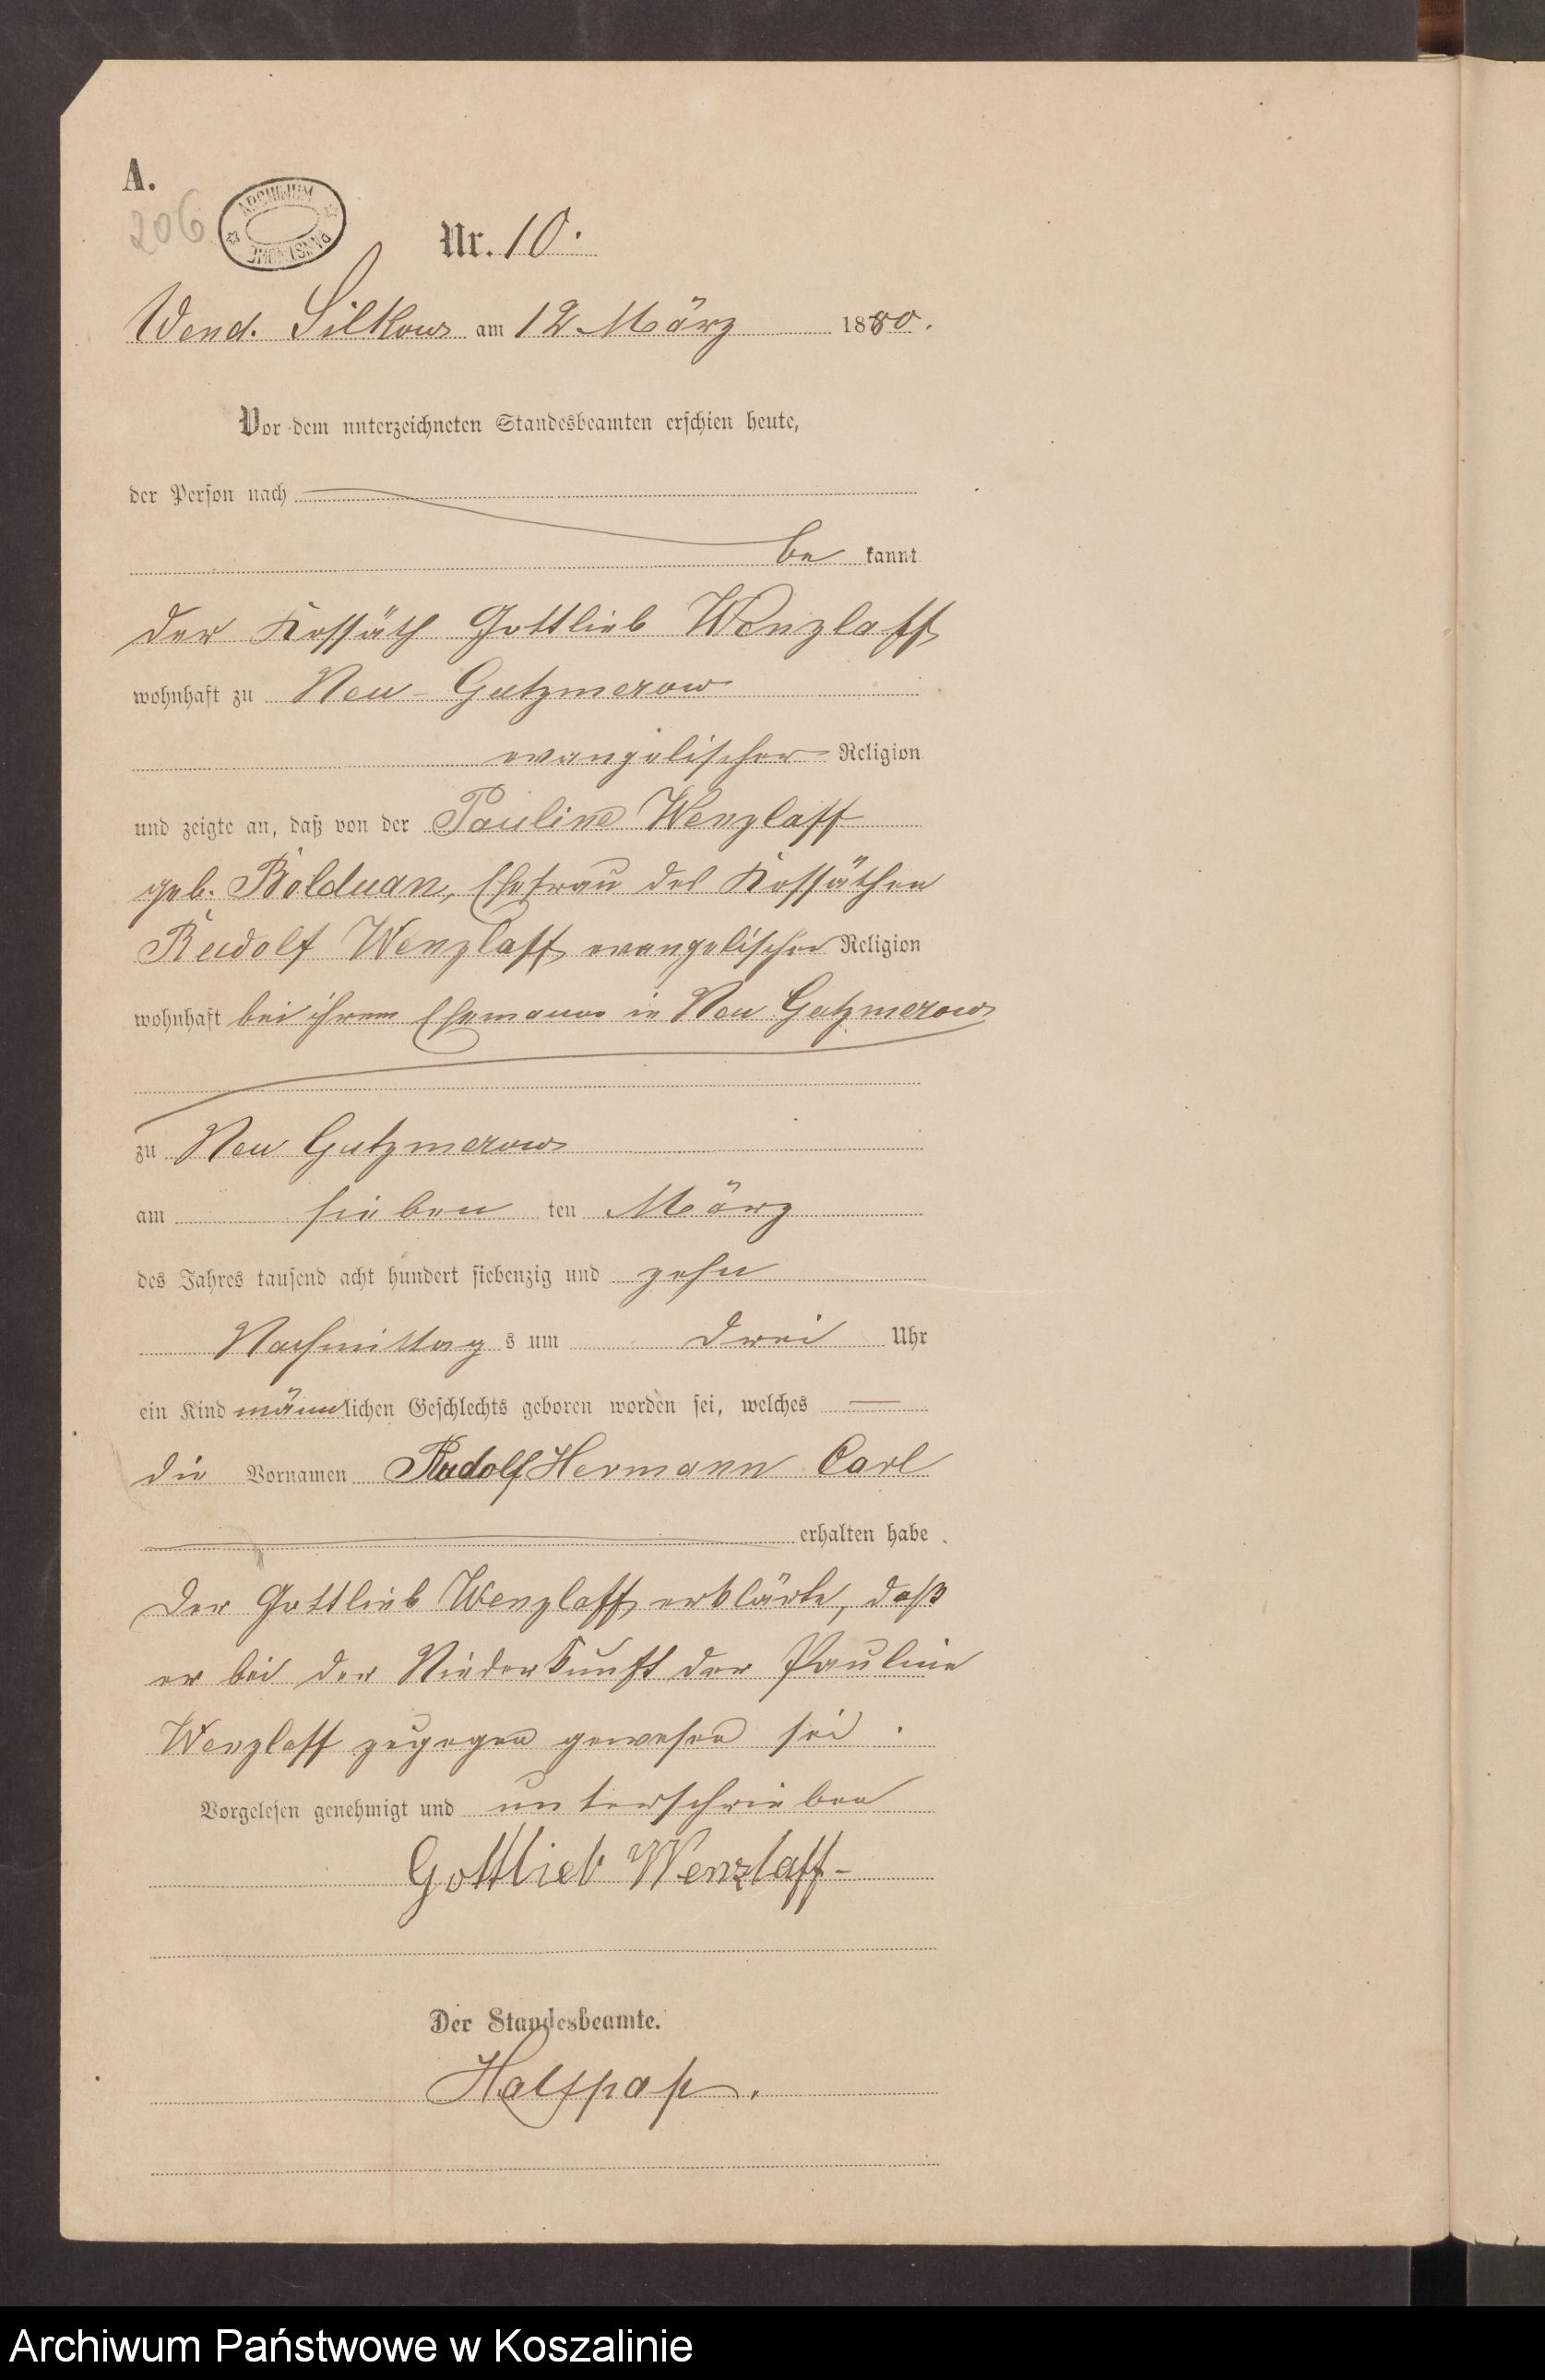 A.
206
ARCHIWUM PAŃSTWOWE
Nr. 10.
Wend. Silkow am 12 März 1880.
Vor dem unterzeichneten Standesbeamten erschien heute,
der Person nach
be kannt
der Kossäth Gottlieb Wenzlaff
wohnhaft zu Neu-Gutzmerow
evangelischer Religion
und zeigte an, daß von der Pauline Wenzlaff
geb. Bolduan, Ehefrau des Kossäthen
Rudolf Wenzlaff, evangelischer Religion
wohnhaft bei ihrem Ehemann in Neu Gutzmerow
zu Neu Gutzmerow
am sieben ten März
des Jahres tausend acht hundert siebenzig und zehn
Nachmittag s um drei Uhr
ein Kind männlichen Geschlechts geboren worden sei, welches
die Vornamen Rudolf Hermann Carl
erhalten habe.
Der Gottlieb Wenzlaff erklärte, daß
er bei der Niederkunft der Pauline
Wenzlaff zugegen gewesen sei.
Vorgelesen genehmigt und unterschrieben
Gottlieb Wenzlaff
Der Standesbeamte.
Archiwum Państwowe w Koszalinie